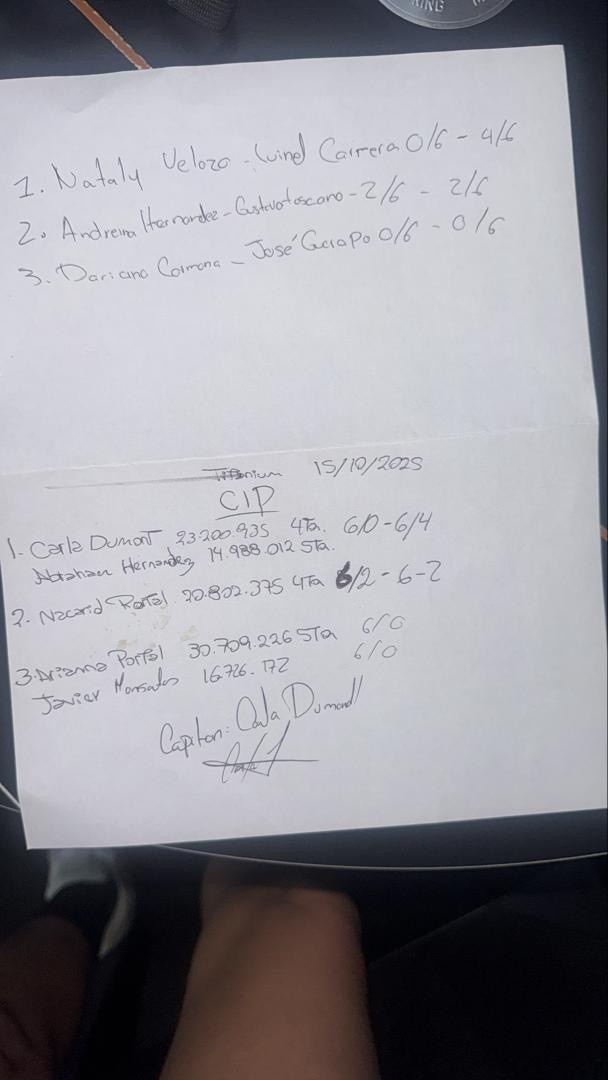 RING
1. Nataly Velozo - Luind Carrera 0/6 - 4/6
2. Andreina Hernandez - Gustavo toscano - 2/6 - 2/6
3. Dariana Carmona - José Guapo 0/6 - 0/6
Titanium 15/10/2025
CIP
1. Carla Dumont 23.200.935 4Ta. 6/0 - 6/4
Hernandez 14.988.012 5ta.
2. Nacarid Portal 20.802.375 4Ta 6/2 - 6-2
3. Arianna Portal 30.709.226 5Ta 6/0
Javier 16.726.172 6/0
Capitan: Carla Dumont